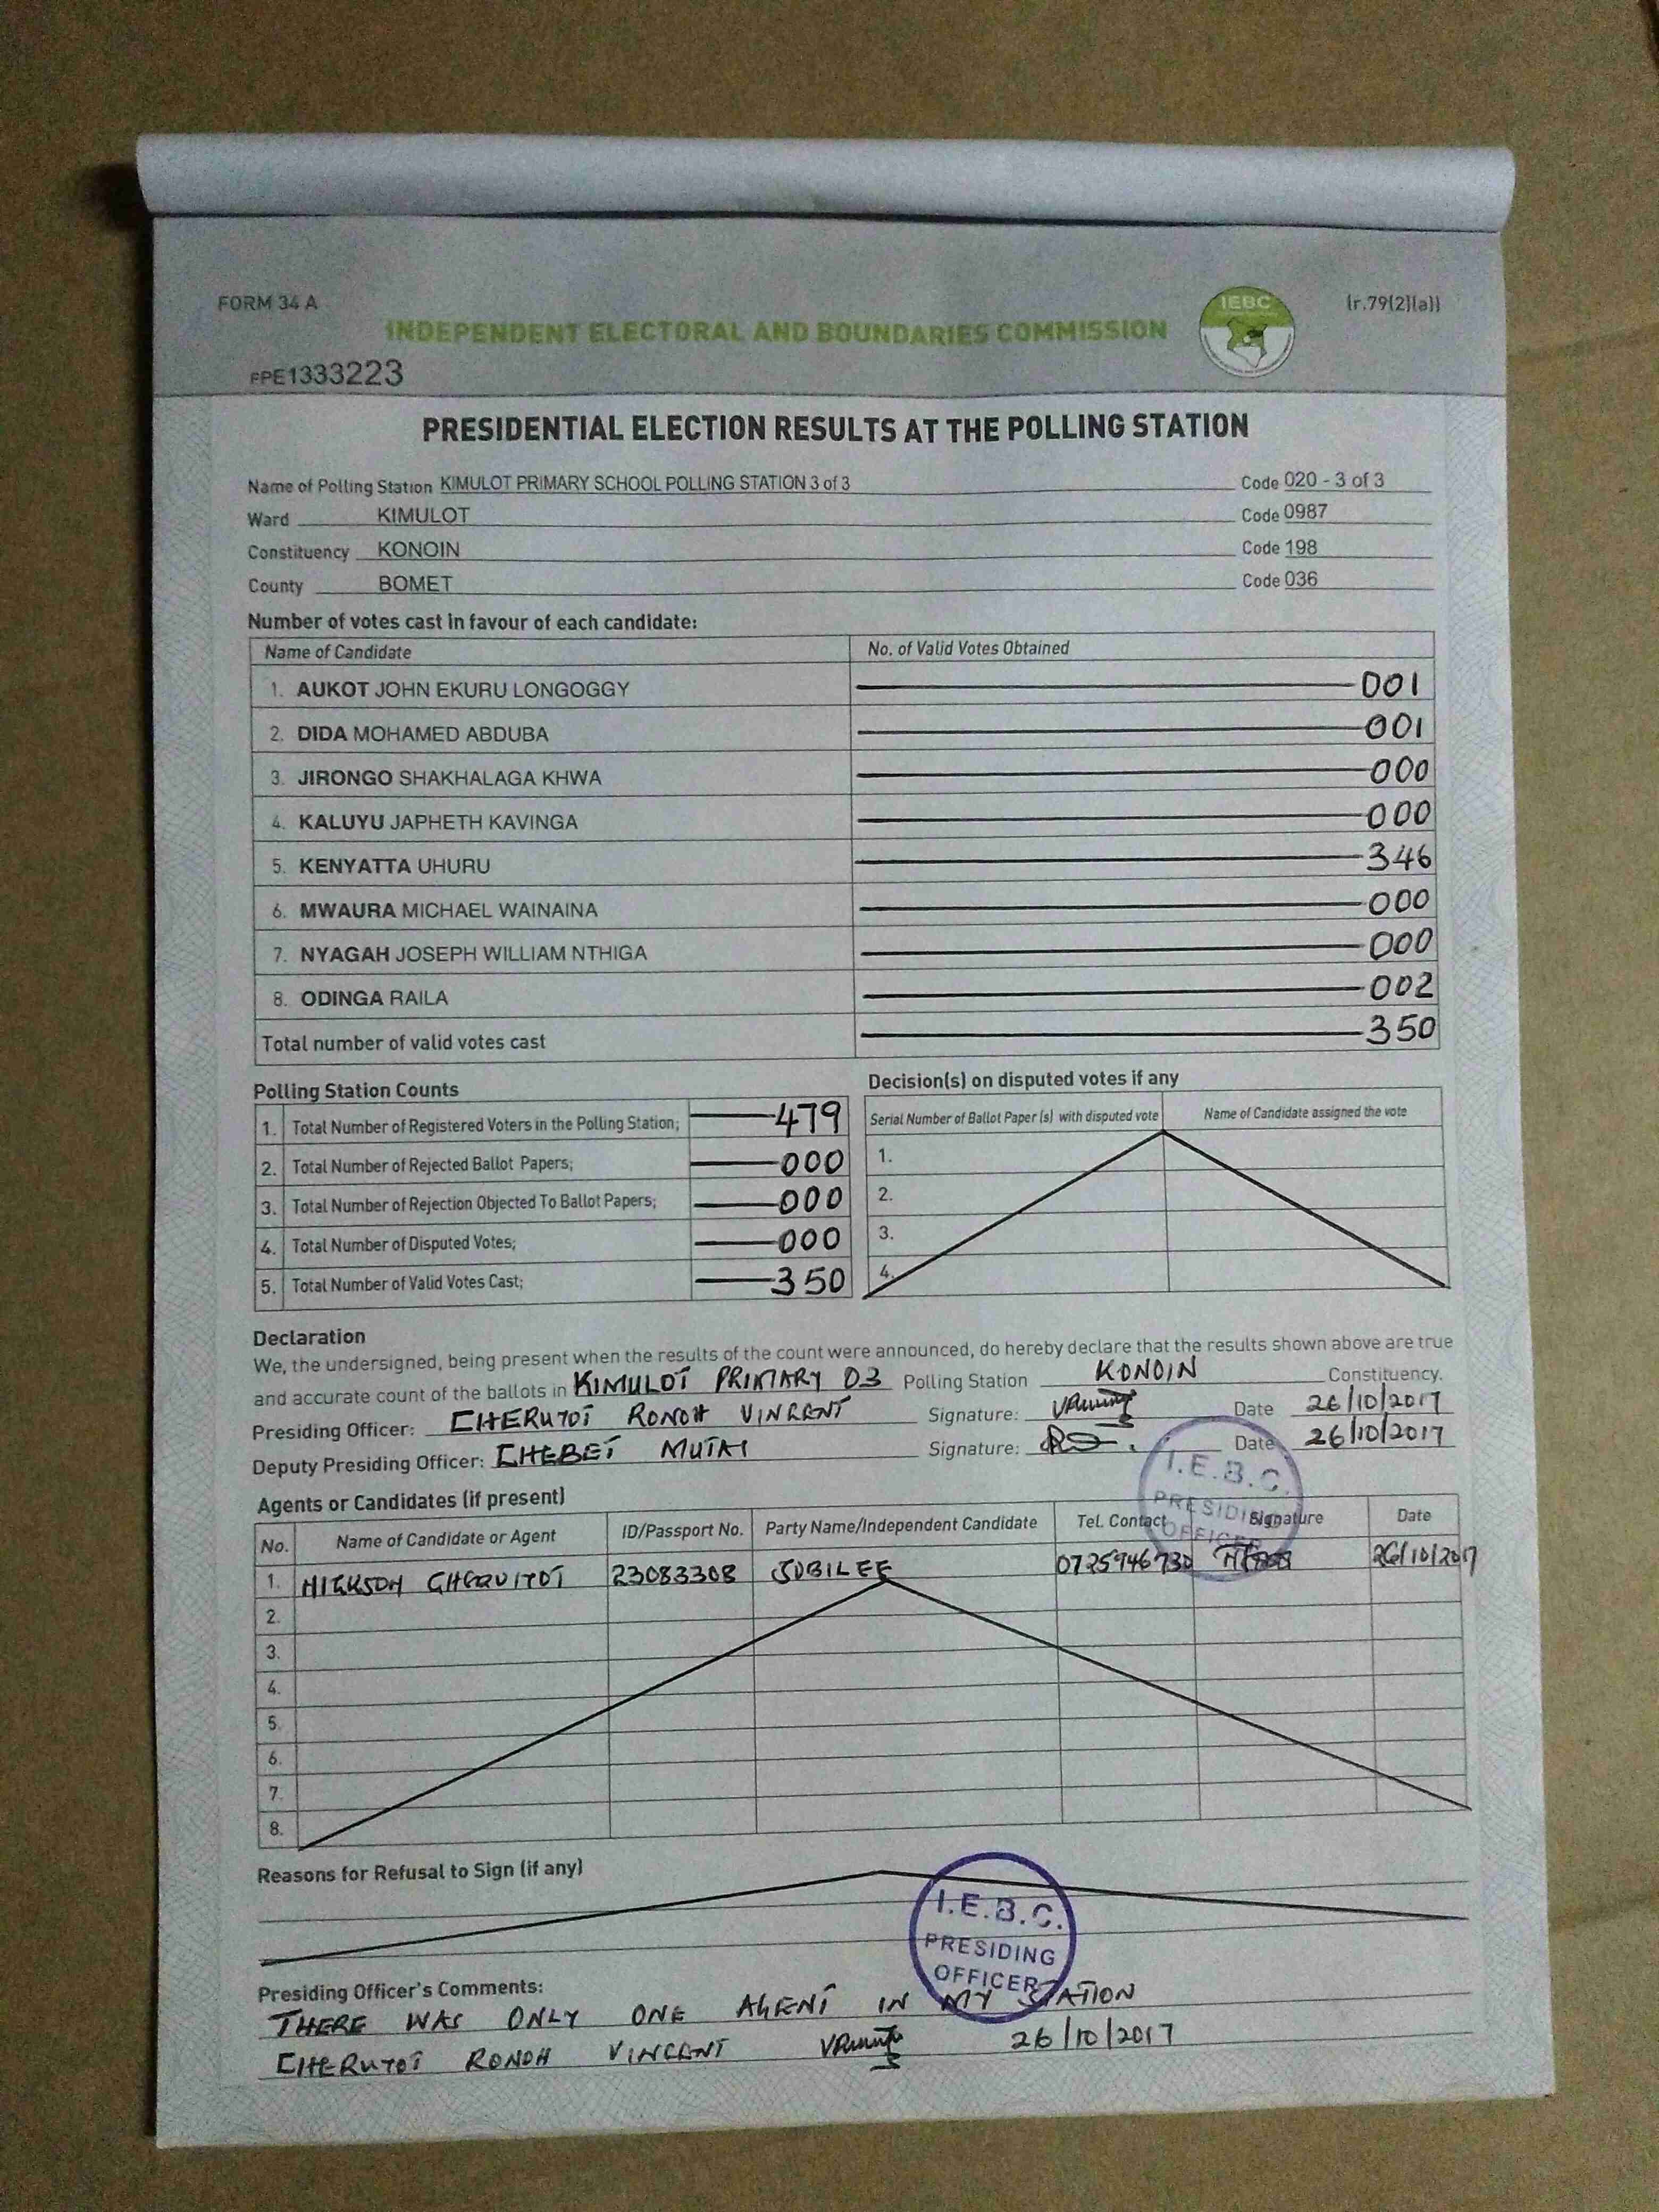 FORM 34 A
IEBC
(r.79(2)(a))
INDEPENDENT ELECTORAL AND BOUNDARIES COMMISSION
FPE1333223
PRESIDENTIAL ELECTION RESULTS AT THE POLLING STATION
Name of Polling Station KIMULOT PRIMARY SCHOOL POLLING STATION 3 of 3 Code 020 - 3 of 3
Ward KIMULOT Code 0987
Constituency KONOIN Code 198
County BOMET Code 036
Number of votes cast in favour of each candidate:
Name of Candidate No. of Valid Votes Obtained
1. AUKOT JOHN EKURU LONGOGGY 001
2. DIDA MOHAMED ABDUBA 001
3. JIRONGO SHAKHALAGA KHWA 000
4. KALUYU JAPHETH KAVINGA 000
5. KENYATTA UHURU 346
6. MWAURA MICHAEL WAINAINA 000
7. NYAGAH JOSEPH WILLIAM NTHIGA 000
8. ODINGA RAILA 002
Total number of valid votes cast 350
Polling Station Counts
1. Total Number of Registered Voters in the Polling Station; 479
2. Total Number of Rejected Ballot Papers; 000
3. Total Number of Rejection Objected To Ballot Papers; 000
4. Total Number of Disputed Votes; 000
5. Total Number of Valid Votes Cast; 350
Decision(s) on disputed votes if any
Serial Number of Ballot Paper (s) with disputed vote Name of Candidate assigned the vote
1.
2.
3.
4.
Declaration
We, the undersigned, being present when the results of the count were announced, do hereby declare that the results shown above are true
and accurate count of the ballots in KIMULOT PRIMARY 03 Polling Station KONOIN Constituency.
Presiding Officer: CHERUYOT RONOH VINCENT Signature: Date 26/10/2017
Deputy Presiding Officer: CHEBET MUTAI Signature: Date 26/10/2017
I.E.B.C.
PRESIDING
OFFICER
Agents or Candidates (if present)
No. Name of Candidate or Agent ID/Passport No. Party Name/Independent Candidate Tel. Contact Signature Date
1. CHERUIYOT 23083308 JUBILEE 0725946730 26/10/2017
2.
3.
4.
5.
6.
7.
8.
Reasons for Refusal to Sign (if any)
I.E.B.C.
PRESIDING
OFFICER
Presiding Officer's Comments:
THERE WAS ONLY ONE AGENT IN MY STATION
CHERUYOT RONOH VINCENT 26/10/2017